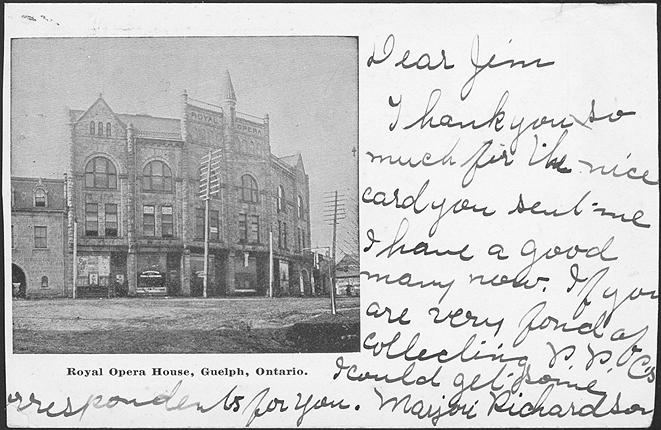 ROYAL OPERA
Royal Opera House, Guelph, Ontario.
Dear Jim
Thank you so
much for the nice
card you sent me
I have a good
many now. If you
are very fond of
collecting P. P. C's
I could get some
orrespondents for you. Marjori Richardson